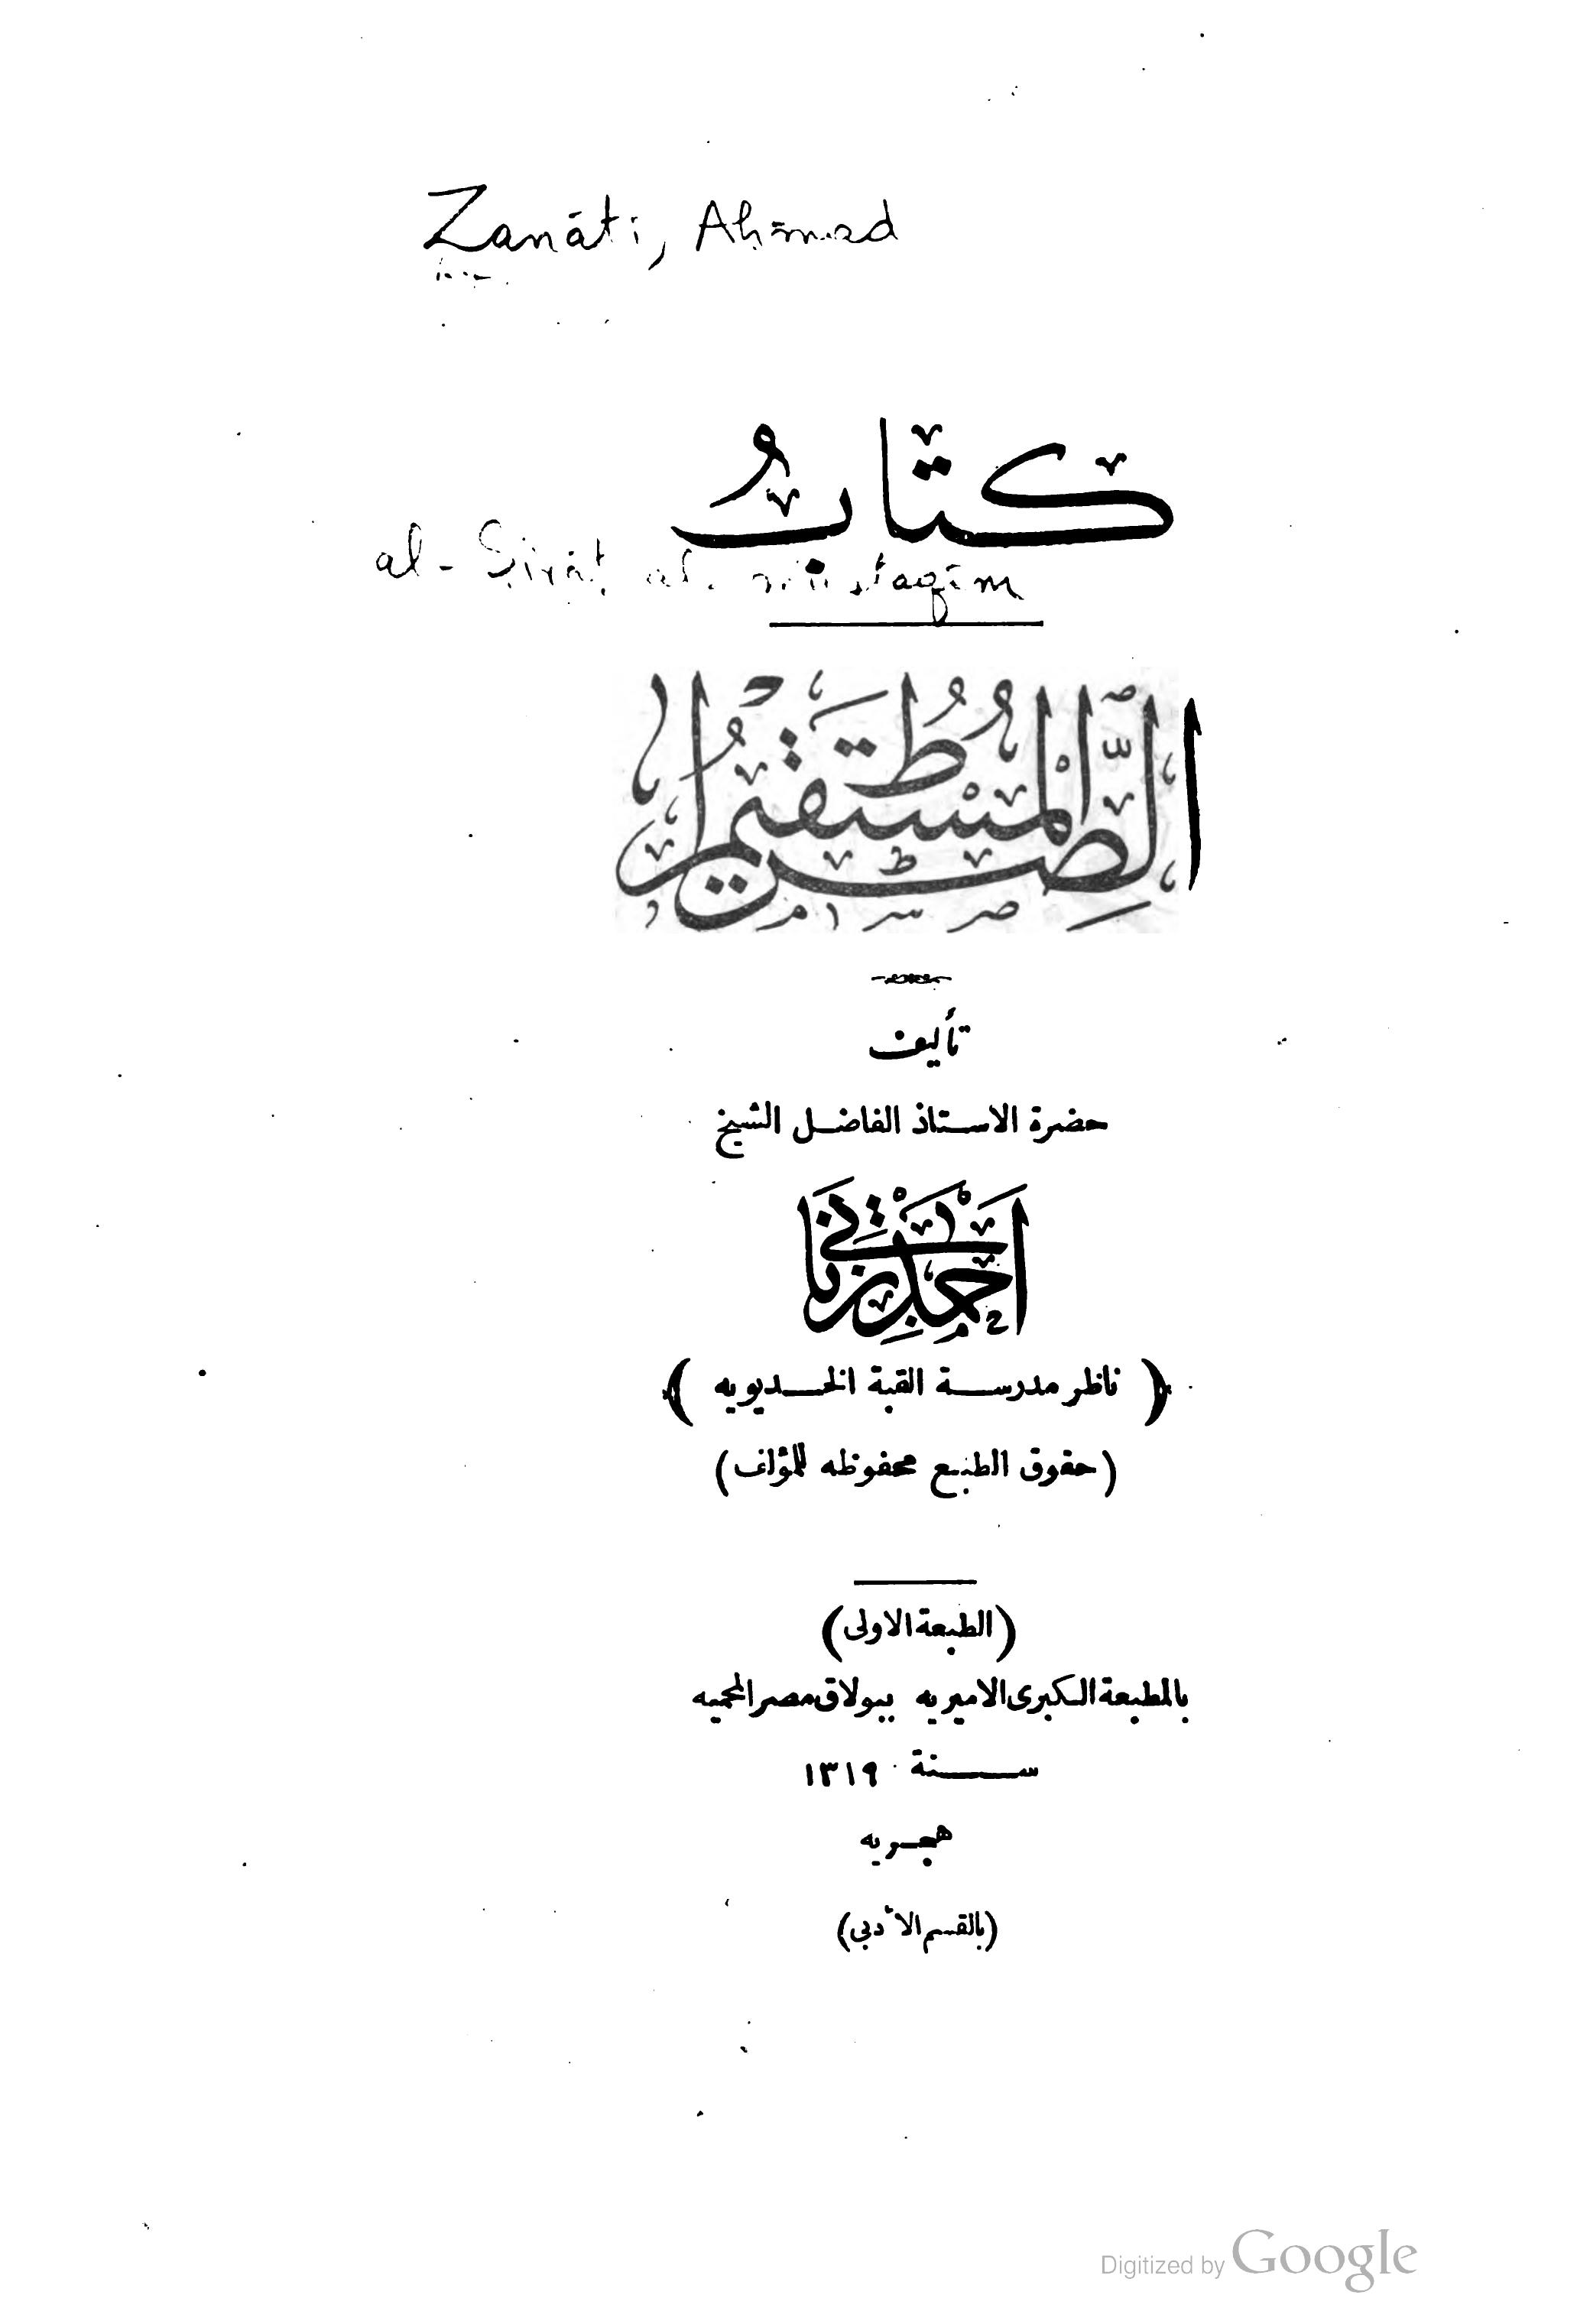 Zanāti, Aḥmad
كتابُ
al-Ṣirāṭ al-mustaqīm
الصِّرَاطُ الْمُسْتَقِيمُ
تأليف
حضرة الاستاذ الفاضل الشيخ
أَحْمَد زَنَاتِي
(ناظر مدرسة القبة الخديويه)
(حقوق الطبع محفوظه للمؤلف)
(الطبعة الاولى)
بالمطبعة الكبرى الاميريه ببولاق مصر المحميه
سنة ١٣١٩
هجريه
(بالقسم الأدبى)
Digitized by Google